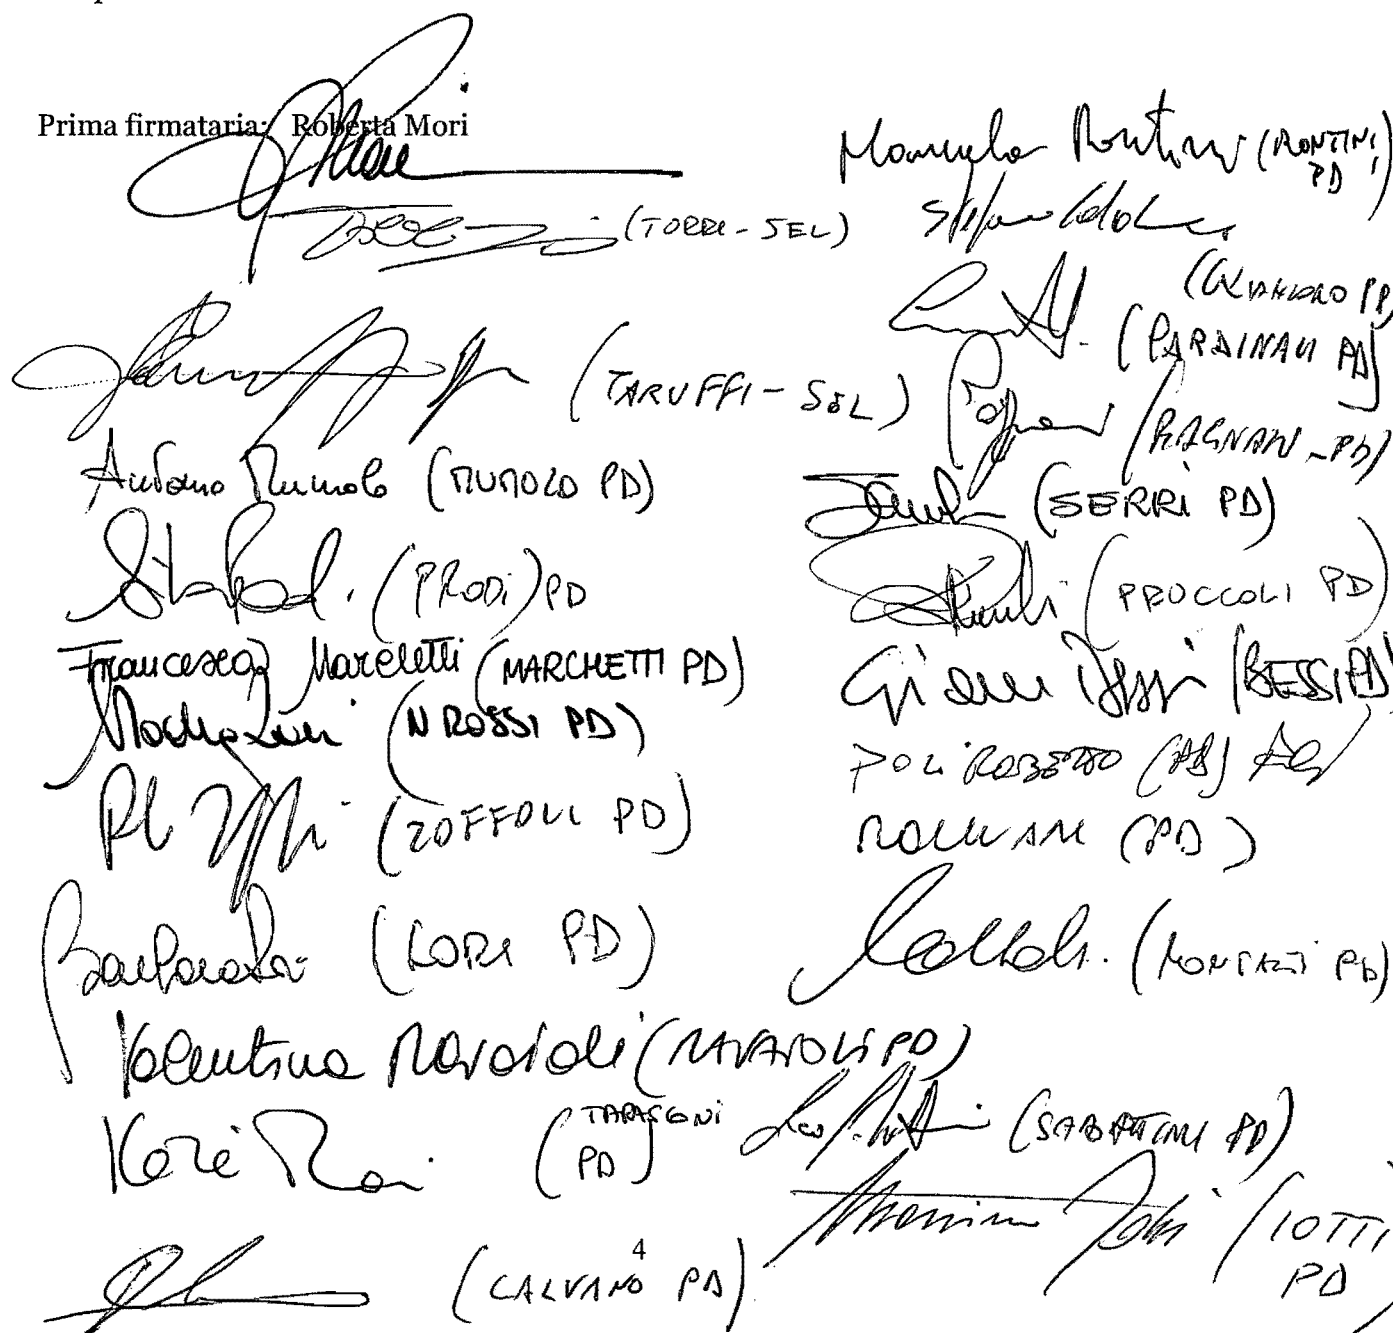 Prima firmataria: Roberta Mori
(TORRI - SEL)
(TARUFFI - SEL)
Antonio Mumolo (MUMOLO PD)
(PRODI) PD
Francesca Marchetti (MARCHETTI PD)
(N ROSSI PD)
(ZOFFOLI PD)
Barbara Lori (LORI PD)
Valentina Ravaioli (RAVAIOLI PD)
(TARASCONI PD)
(CALVANO PD)
Manuela Rontini (RONTINI PD)
Stefano Caliandro
(CALIANDRO PD)
(PARDINAU PD)
(RAGNAU - PD)
(SERRI PD)
(PRUCCOLI PD)
Gianni Bessi (BESSI PD)
POLI ROBERTO (PD)
MOLINARI (PD)
(MONTALTI PD)
(SABATTINI PD)
Massimo Iotti (IOTTI PD)
4